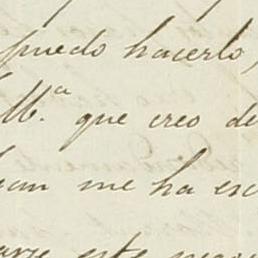 puedo hacerlo,
M.ª que creo de
me ha esc
este